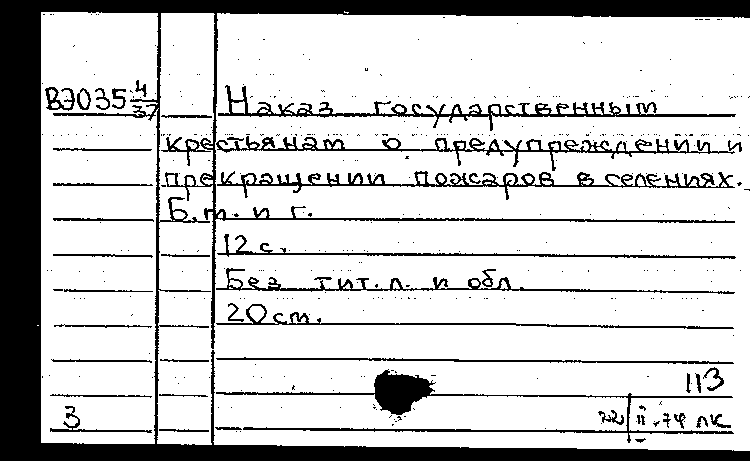 ВЭ035 4/37 Наказ государственным
крестьянам о предупреждении и
прекращении пожаров в селениях.
Б.м. и г.
12 с.
Без тит.л. и обл.
20 см.
113
3 22/II-74 ЛК